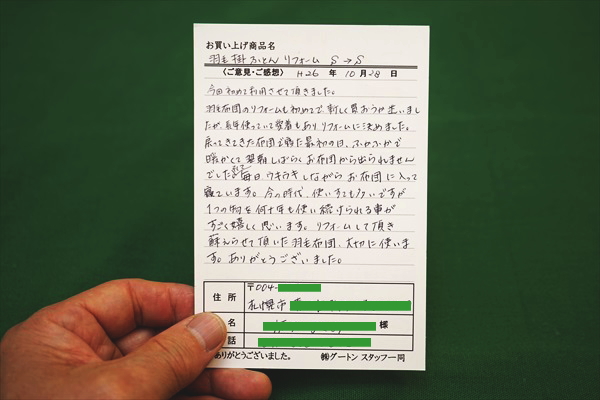 お買い上げ商品名
羽毛掛ふとんリフォーム S→S
〈ご意見・ご感想〉 H26 年 10月28日
今回初めて利用させて頂きました。
羽毛布団のリフォームも初めてで新しく買おうか迷いまし
たが、長年使っていて愛着もありリフォームに決めました。
戻ってきてきた布団で寝た最初の日、ふかふかで
暖かくて翌朝しばらくお布団から出られません
でした。毎日ウキウキしながらお布団に入って
寝ています。今の時代、使いすても多いですが
1つの物を何十年も使い続けられる事が
すごく嬉しく思います。リフォームして頂き
蘇えらせて頂いた羽毛布団、大切に使いま
す。ありがとうございました。
住所
〒004-
札幌市
名
様
話
ありがとうございました。 ㈱グートン スタッフ一同